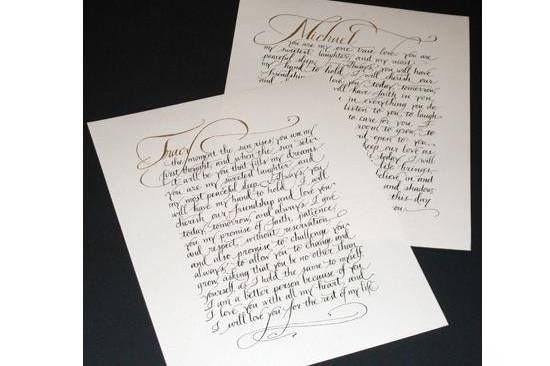 Michael
you are my one true love, you are
my sweetest laughter, and my most
peaceful sleep. Always, you will have
my hand to hold. I will cherish our
friendship
and love you today, tomorrow,
will have faith in you,
in everything you do
listen to you, to laugh
to care for you. I
room to grow, to
open to you.
keep our love as
today. I will
life brings
believe in and
and shadow,
this day
you.
Tracy
the moment the sun rises, you are my
first thought, and when the sun sets
it will be you that fills my dreams.
you are my sweetest laughter and
my most peaceful sleep. Always you
will have my hand to hold. I will
cherish our friendship and love you
today, tomorrow, and always. I give
you my promise of faith, patience
and respect, without reservation
and also promise to challenge you
always, to allow you to change and
grow, asking that you be no other than
yourself as I hold the same to myself.
I am a better person because of you.
I love you with all my heart, and
I will love you for the rest of my life